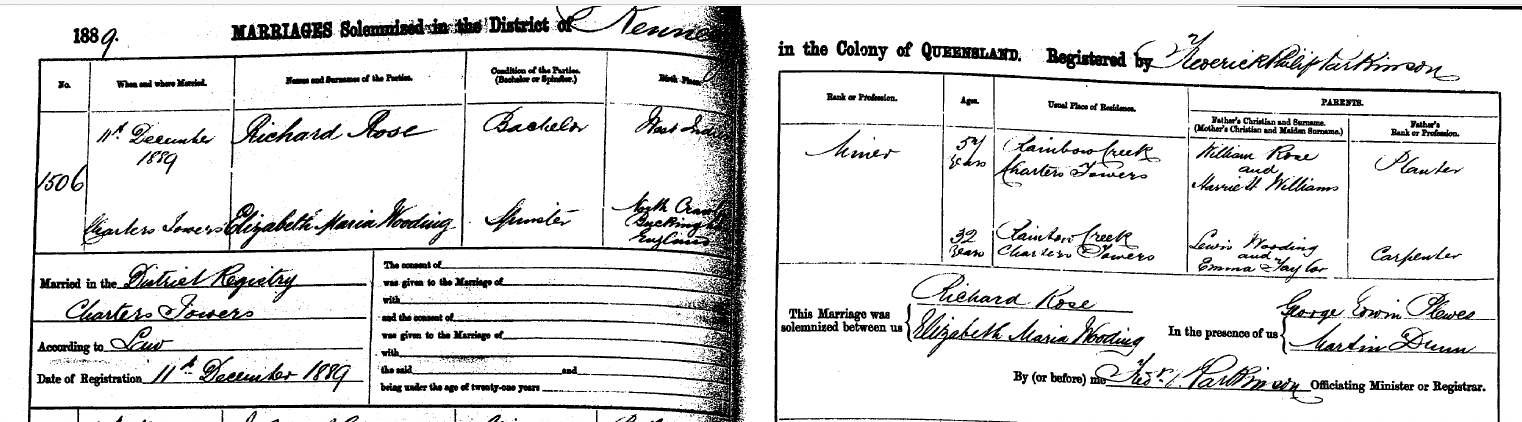 1889. MARRIAGES Solemnized in the District of Kenne
No. When and where Married. Names and Surnames of the Parties. Condition of the Parties. (Bachelor or Spinster.) Birth Place.
11th December 1889 Richard Rose Bachelor West Indi
1506
Charters Towers Elizabeth Maria Wooding Spinster North Craw
Buckingh
England
Married in the District Registry
Charters Towers
According to Law
Date of Registration 11th December 1889
The consent of
was given to the Marriage of
with
and the consent of
was given to the Marriage of
with
the said and
being under the age of twenty-one years
in the Colony of QUEENSLAND. Registered by Frederick Philip Parkinson
Rank or Profession. Ages. Usual Place of Residence. PARENTS.
Father's Christian and Surname. (Mother's Christian and Maiden Surname.) Father's Rank or Profession.
Miner years Rainbow Creek William Rose Planter
Charters Towers and
Harriett Williams
32 Rainbow Creek Lewis Wooding Carpenter
years Charters Towers and
Emma Taylor
This Marriage was solemnized between us Richard Rose
Elizabeth Maria Wooding
In the presence of us George Edwin Plewes
Martin Dunn
By (or before) me Fred. P. Parkinson Officiating Minister or Registrar.